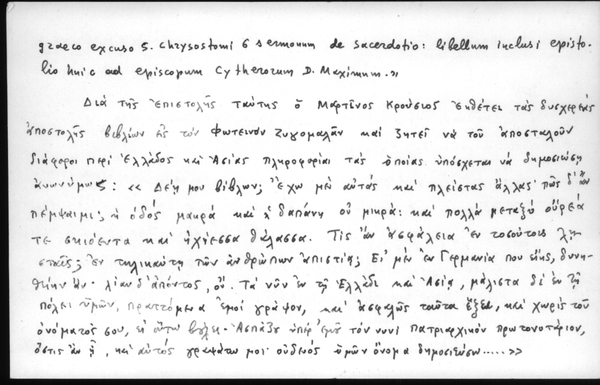 graeco excuso S. Chrysostomi 6 sermonum de sacerdotio: libellum inclusi episto-
lio huic ad episcopum Cytherorum D. Maximum.»
Διά τῆς ἐπιστολῆς ταύτης ὁ Μαρτῖνος Κρούσιος ἐκθέτει τάς δυσχερείας
ἀποστολῆς βιβλίων εἰς τόν Φωτεινόν Ζυγομαλᾶν καί ζητεῖ νά τοῦ ἀποσταλοῦν
διάφοροι περί Ἑλλάδος καί Ἀσίας πληροφορίαι τάς ὁποίας ὑπόσχεται νά δημοσιεύσῃ
ἀνωνύμως: « Δέῃ μου βίβλων; Ἔχω μέν αὐτάς καί πλείστας ἄλλας· πῶς δ' ἄν
πέμψαιμι; ἡ ὁδός μακρά καί ἡ δαπάνη οὐ μικρά: καί πολλά μεταξύ οὔρεά
τε σκιόεντα καί ἠχήεσσα θάλασσα. Τίς ἄν ἀσφάλεια ἐν τοσούτοις λῃ-
σταῖς; ἐν τηλικαύτῃ τῶν ἀνθρώπων ἀπιστίᾳ; Εἰ μέν ἐν Γερμανίᾳ που εἴης, δυνη-
θείην ἄν· λίαν δ' ἀπόντος, οὔ. Τά νῦν ἐν τῇ Ἑλλάδι καί Ἀσίᾳ, μάλιστα δέ ἐν τῇ
πόλει ὑμῶν, πραττόμενα ἐμοί γράψον, καί ἀσφαλῶς ταῦτα ἕξει, καί χωρίς τοῦ
ὀνόματός σου, εἰ οὕτω βούλει. Ἀσπάζου ὑπέρ ἐμοῦ τόν νυνί Πατριαρχικόν πρωτονοτάριον,
ὅστις ἄν ᾖ, καί αὐτός γραψάτω μοι· οὐδενός ὑμῶν ὄνομα δημοσιεύσω.....»